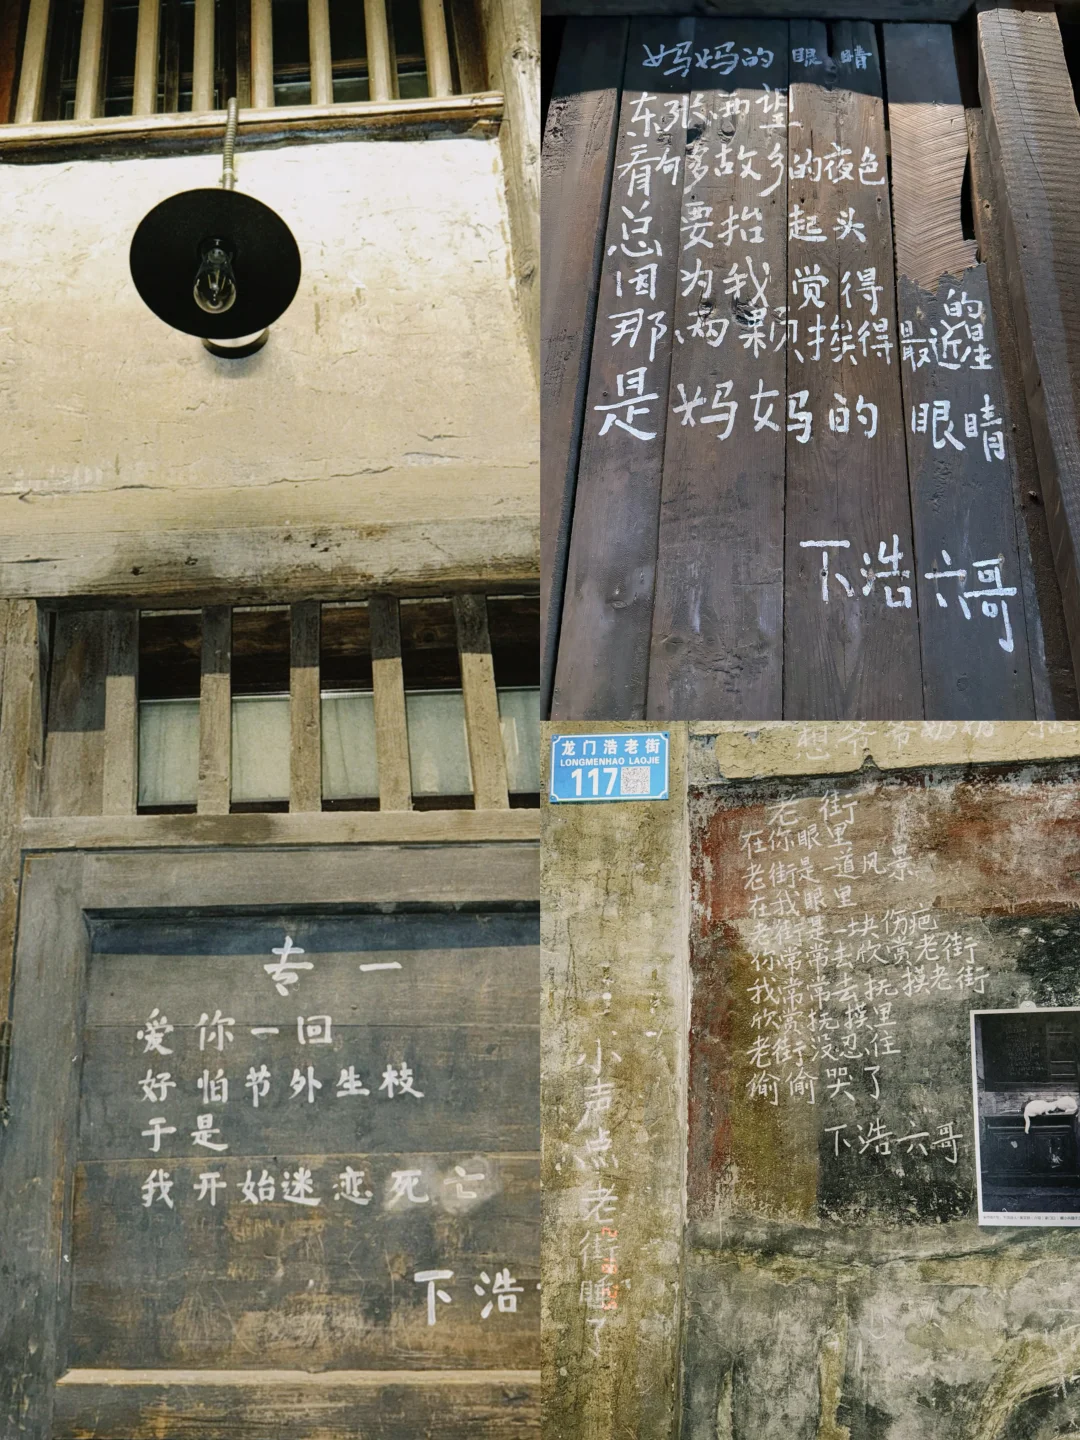 专一
爱你一回
好怕节外生枝
于是
我开始迷恋死亡
下浩
妈妈的眼睛
东张西望
看够故乡的夜色
总要抬起头
因为我觉得
那两颗挨得最近的星
是妈妈的眼睛
下浩六哥
龙门浩老街
LONGMENHAO LAOJIE
117
小声点老街睡了
想爷爷奶奶
老街
在你眼里
老街是一道风景
在我眼里
老街是一块伤疤
你常常去欣赏老街
我常常去抚摸老街
欣赏抚摸里
老街没忍住
偷偷哭了
下浩六哥